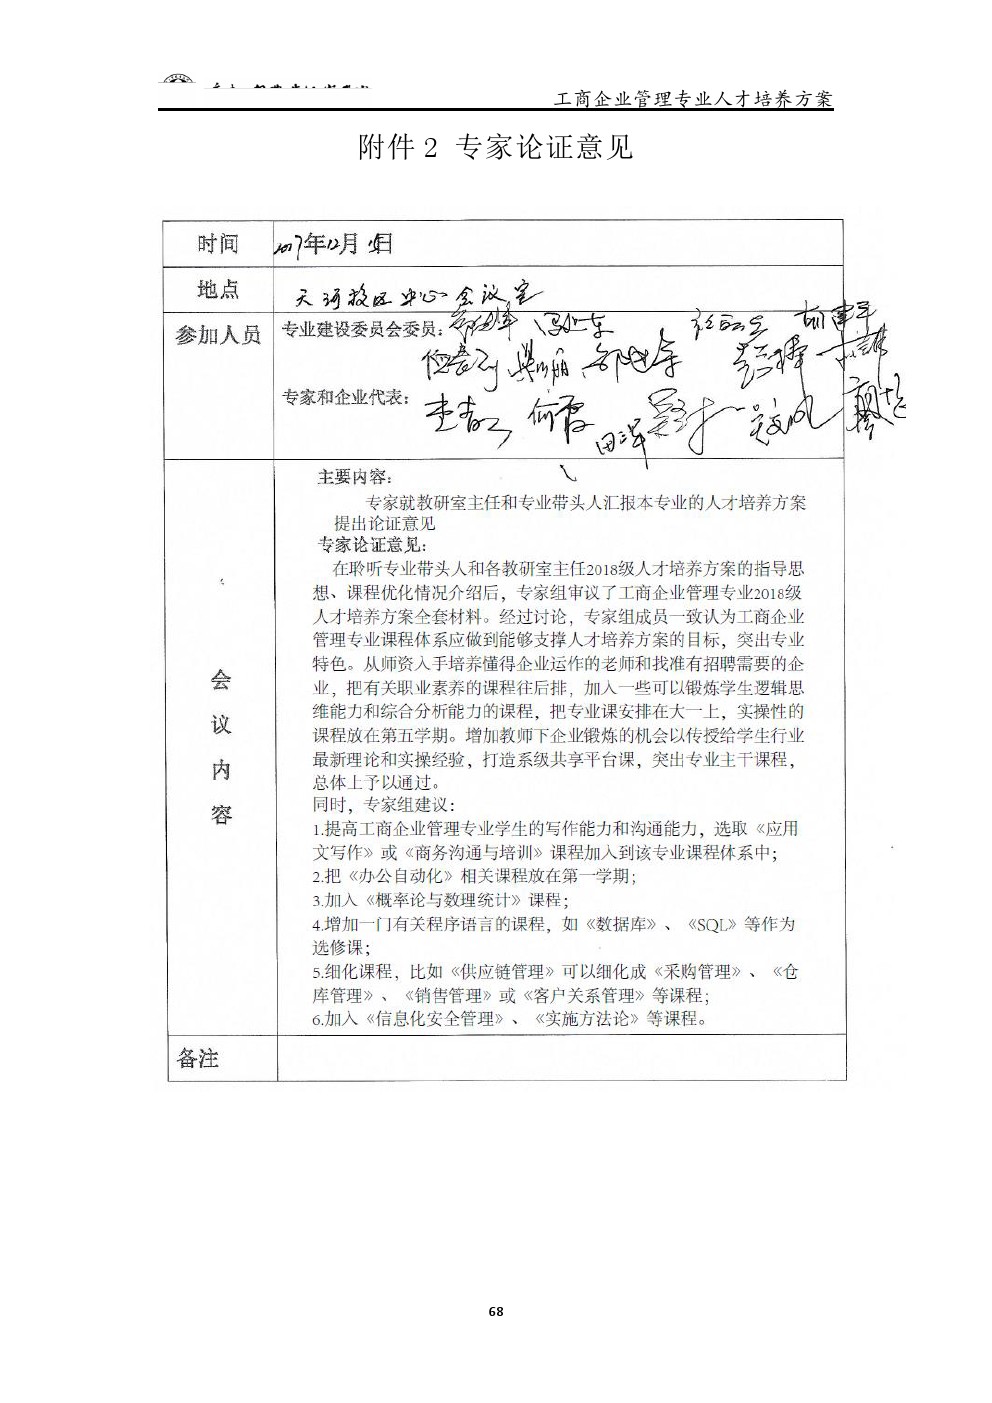 工商企业管理专业人才培养方案
附件 2 专家论证意见
时间
2017年12月 日
地点
天河校区中心会议室
参加人员
专业建设委员会委员：
专家和企业代表：
会议内容
主要内容：
专家就教研室主任和专业带头人汇报本专业的人才培养方案
提出论证意见
专家论证意见：
在聆听专业带头人和各教研室主任2018级人才培养方案的指导思
想、课程优化情况介绍后，专家组审议了工商企业管理专业2018级
人才培养方案全套材料。经过讨论，专家组成员一致认为工商企业
管理专业课程体系应做到能够支撑人才培养方案的目标，突出专业
特色。从师资入手培养懂得企业运作的老师和找准有招聘需要的企
业，把有关职业素养的课程往后排，加入一些可以锻炼学生逻辑思
维能力和综合分析能力的课程，把专业课安排在大一上，实操性的
课程放在第五学期。增加教师下企业锻炼的机会以传授给学生行业
最新理论和实操经验，打造系级共享平台课，突出专业主干课程，
总体上予以通过。
同时，专家组建议：
1.提高工商企业管理专业学生的写作能力和沟通能力，选取《应用
文写作》或《商务沟通与培训》课程加入到该专业课程体系中；
2.把《办公自动化》相关课程放在第一学期；
3.加入《概率论与数理统计》课程；
4.增加一门有关程序语言的课程，如《数据库》、《SQL》等作为
选修课；
5.细化课程，比如《供应链管理》可以细化成《采购管理》、《仓
库管理》、《销售管理》或《客户关系管理》等课程；
6.加入《信息化安全管理》、《实施方法论》等课程。
备注
68